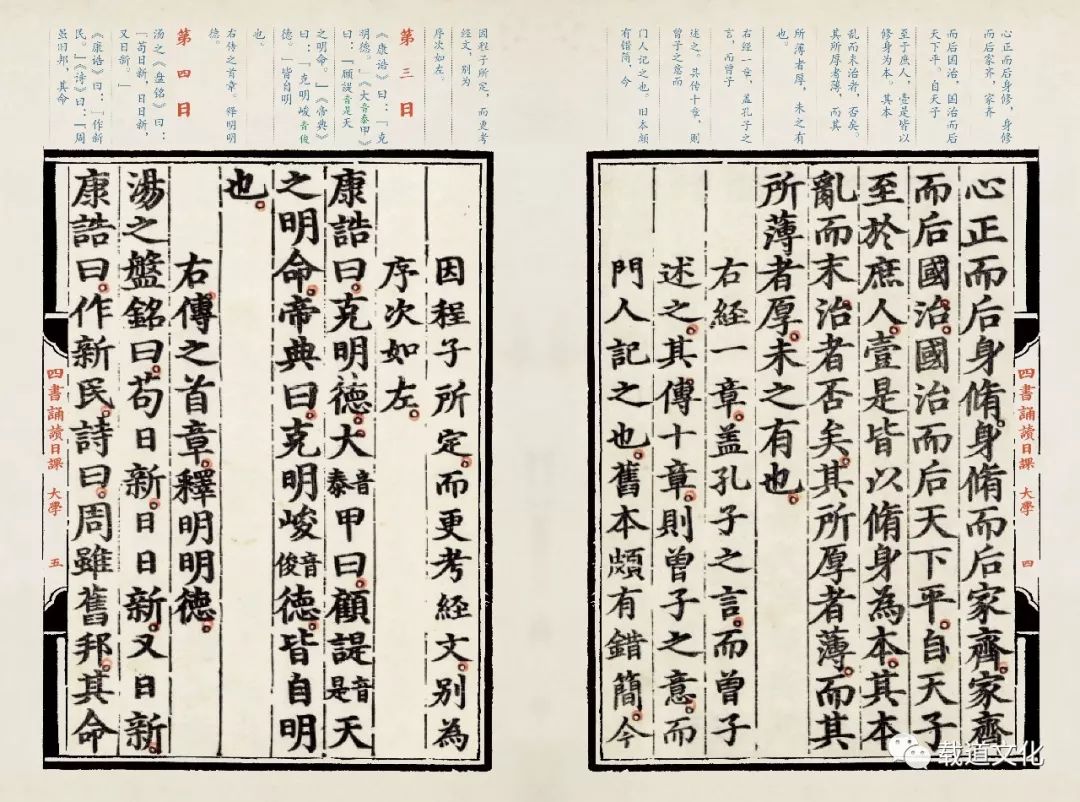 心正而后身修，身修
而后家齐，家齐
而后国治，国治而后
天下平。自天子
至于庶人，壹是皆以
修身为本。其本
乱而末治者，否矣。
其所厚者薄，而其
所薄者厚，未之有
也。
右经一章，盖孔子之
言，而曾子
述之。其传十章，则
曾子之意而
门人记之也。旧本颇
有错简，今
心正而后身脩。身脩而后家齊。家齊
而后國治。國治而后天下平。自天子
至於庶人。壹是皆以脩身為本。其本
亂而末治者否矣。其所厚者薄。而其
所薄者厚。未之有也。
右経一章。盖孔子之言。而曾子
述之。其傳十章。則曾子之意。而
門人記之也。舊本頗有錯簡。今
四書誦讀日課 大學 四
因程子所定，而更考
经文，别为
序次如左。
第三日
《康诰》曰：「克
明德。」《大音泰甲》
曰：「顾諟音是天
之明命。」《帝典》
曰：「克明峻音俊
德。」皆自明
也。
右传之首章。释明明
德。
第四日
汤之《盘铭》曰：
「苟日新，日日新，
又日新。」
《康诰》曰：「作新
民。」《诗》曰：「周
虽旧邦，其命
因程子所定。而更考経文。别為
序次如左。
康誥曰。克明德。大音泰甲曰。顧諟音是天
之明命。帝典曰。克明峻音俊德。皆自明
也。
右傳之首章。釋明明德。
湯之盤銘曰。苟日新。日日新。又日新。
康誥曰。作新民。詩曰。周雖舊邦。其命
四書誦讀日課 大學 五
载道文化